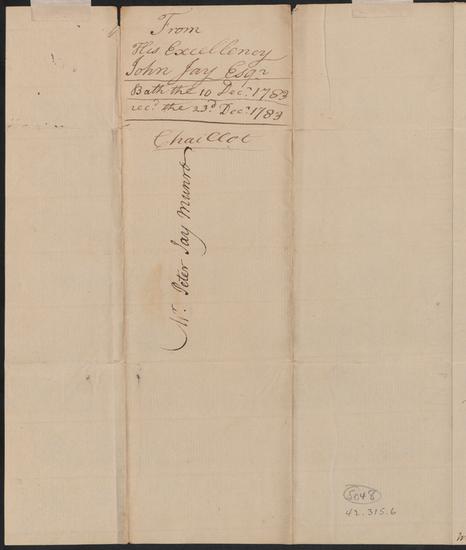 From
His Excellency
John Jay Esqr
Bath the 10 Decr. 1783
recd. the 23d. Decr. 1783
Chaillot
Mr. Peter Jay Munro
5048
42.315.6